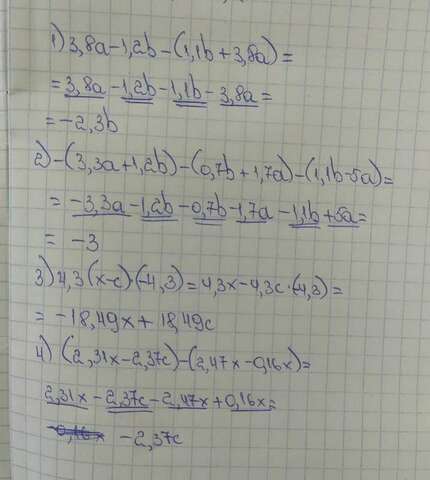 1) 3,8a-1,2b-(1,1b+3,8a)=
=3,8a-1,2b-1,1b-3,8a=
=-2,3b
2) -(3,3a+1,2b)-(0,7b+1,7a)-(1,1b-5a)=
=-3,3a-1,2b-0,7b-1,7a-1,1b+5a=
= -3
3) 4,3(x-c)·(-4,3)=4,3x-4,3c·(-4,3)=
=-18,49x+18,49c
4) (2,31x-2,37c)-(2,47x-0,16x)=
2,31x-2,37c-2,47x+0,16x=
0,16x -2,37c